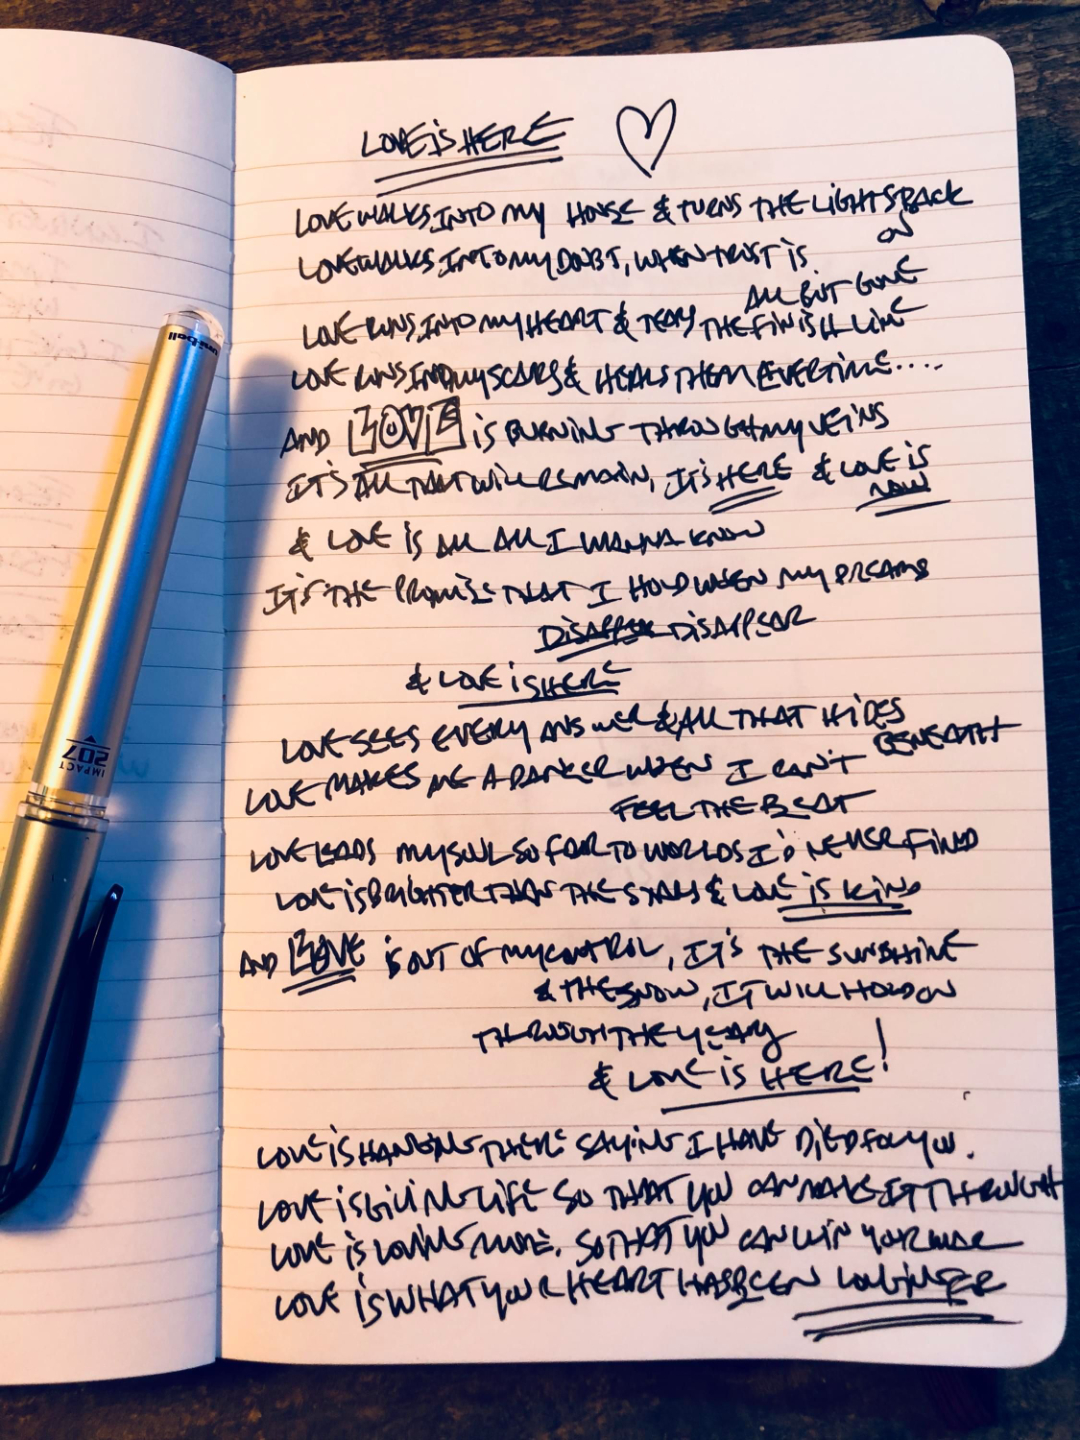 LOVE IS HERE
LOVE WALKS INTO MY HOUSE & TURNS THE LIGHTS BACK
ON
LOVE WALKS INTO MY DOUBT, WHEN TRUST IS
ALL BUT GONE
LOVE RUNS INTO MY HEART & THE FINISH LINE
LOVE RUNS INTO MY SCARS & HEALS THEM EVERTIME....
AND LOVE IS BURNING THROUGH MY VEINS
IT'S ALL THAT WILL REMAIN, IT'S HERE & LOVE IS
NOW
& LOVE IS ALL ALL I WANNA KNOW
IT'S THE PROMISE THAT I HOLD WHEN MY DREAMS
DISAPPEAR
& LOVE IS HERE
LOVE SEES EVERY ANSWER & ALL THAT HIDES
BENEATH
LOVE MAKES ME A DANCER WHEN I CAN'T
FEEL THE BEAT
LOVE LEADS MY SOUL SO FAR TO WORLDS I'D NEVER FIND
LOVE IS BRIGHTER THAN THE STARS & LOVE IS KIND
AND LOVE IS OUT OF MY CONTROL, IT'S THE SUNSHINE
& THE SNOW, IT WILL HOLD ON
THROUGH THE YEARS
& LOVE IS HERE!
LOVE IS HANGING THERE SAYING I HAVE DIED FOR YOU.
LOVE IS GIVING LIFE SO THAT YOU CAN MAKE IT THROUGH
LOVE IS LOVING MORE. SO THAT YOU CAN WIN YOUR WAR
LOVE IS WHAT YOUR HEART HAS BEEN LONGING FOR
uni-ball
IMPACT
207